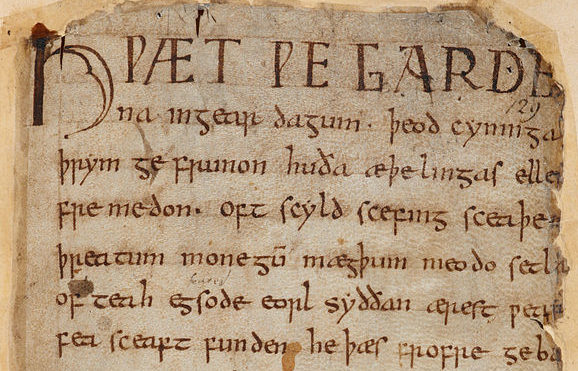 HǷÆT ǷE GARDE
129
na ingear dagum · þeod cyninga
þrym ge frunon huða æþelingas elle
fre medon. oft scyld scefing sceaþe
þreatum monegū mægþum meodo setla
of teah egsode eorl syððan ærest ƿear
fea sceaft funden he þæs frofre geba